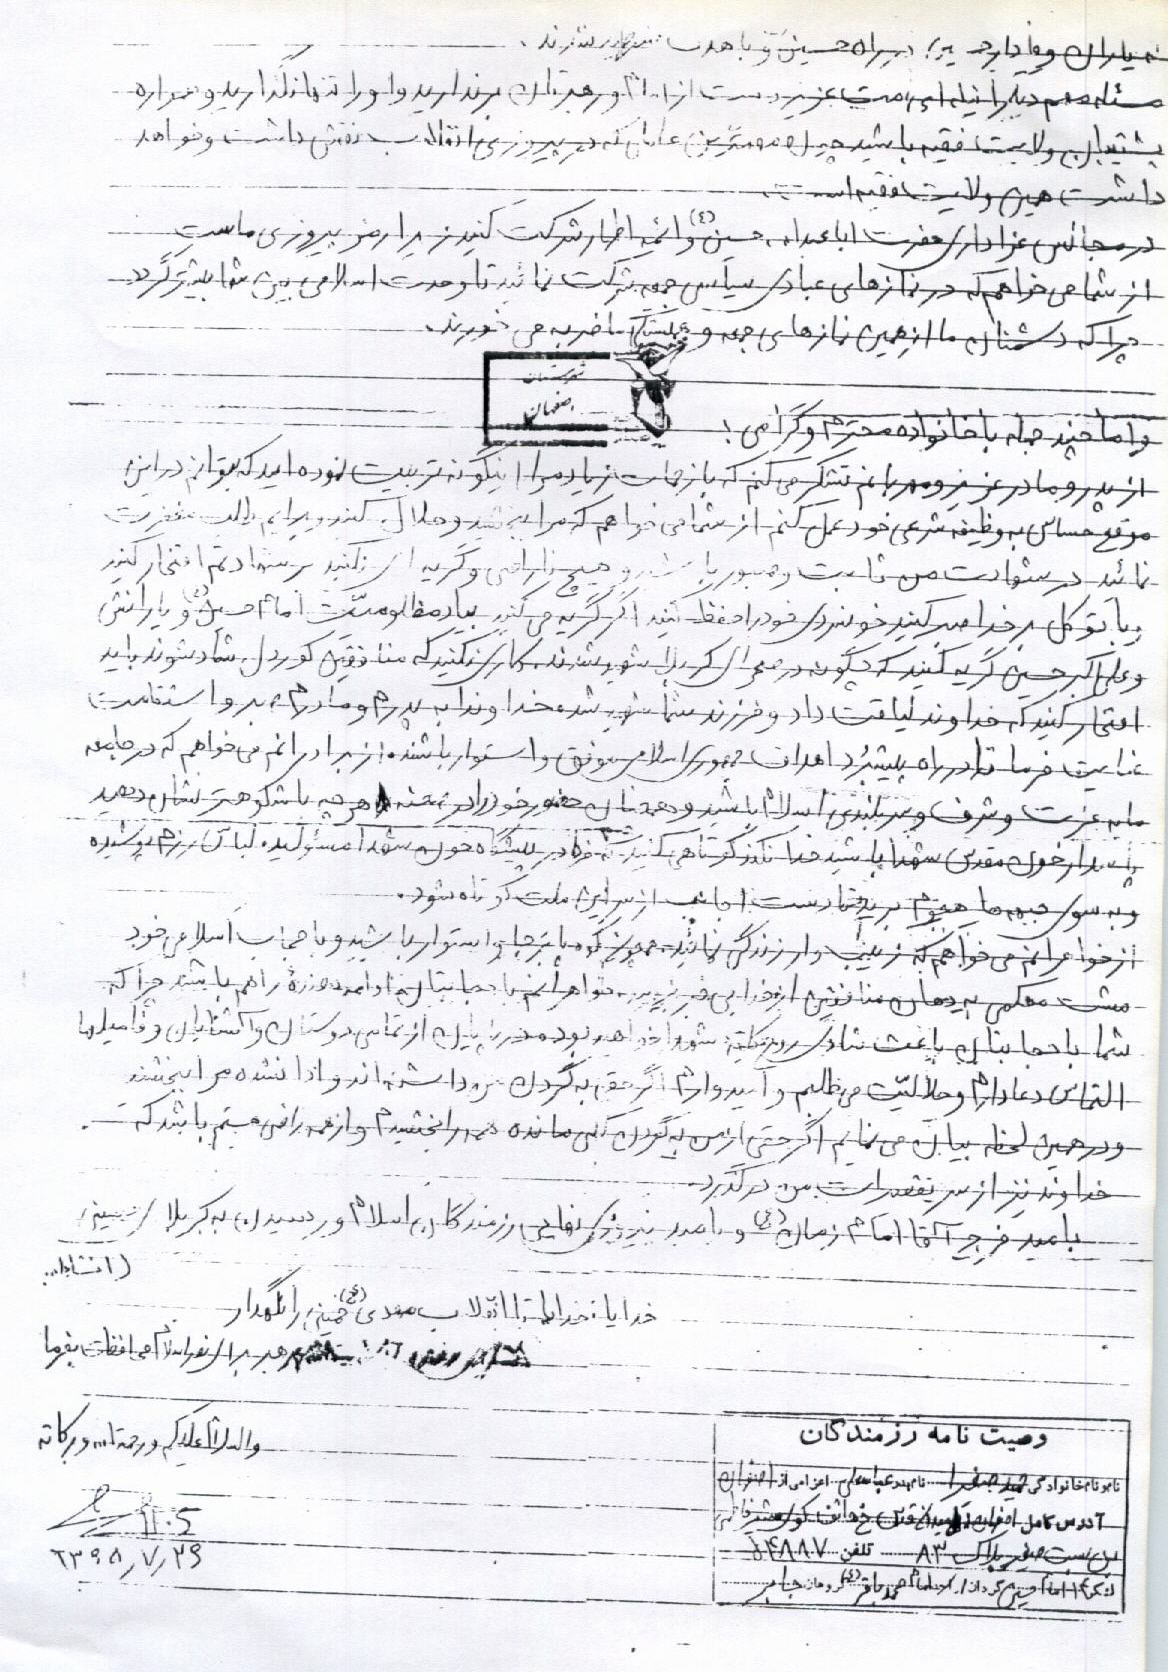 یاران وفادار حسین در راه حسین و با هدف شهید شدند.
مسئله مهم دیگر اینکه ای امت عزیز دست از امام و رهبرتان برندارید و او را تنها نگذارید و همواره
پشتیبان ولایت فقیه باشید چون مهمترین عاملی که در پیروزی انقلاب نقش داشت و خواهد
داشت همین ولایت فقیه است.
در مجالس عزاداری حضرت اباعبداله حسین (ع) و ائمه اطهار شرکت کنید زیرا رمز پیروزی ماست
از شما می‌خواهم که در نمازهای عبادی سیاسی جمعه شرکت نمائید تا وحدت اسلامی بین شما بیشتر گردد
چرا که دشمنان ما از همین نمازهای جمعه و ما ضربه می خورند.
شهرستان
اصفهان
و اما چند جمله با خانواده محترم و گرامی :
از پدر و مادر عزیز و مهربانم تشکر می‌کنم که با زحمات زیاد مرا اینگونه تربیت نموده اید که بتوانم در این
موقع حساس به وظیفه شرعی خود عمل کنم از شما می خواهم که مرا ببخشید و حلال کنید و برایم طلب مغفرت
نمائید در شهادت من ثابت و صبور باشید و هیچ ناراحتی و گریه ای نکنید بر شهادتم افتخار کنید
با توکل بر خدا صبر کنید خونسردی خود را حفظ کنید اگر گریه می کنید بیاد مظلومیت امام حسین و یارانش
و علی اکبر حسین گریه کنید که چگونه در صحرای کربلا شهید شدند. کاری نکنید که منافقین کوردل شاد شوند باید
افتخار کنید که خداوند لیاقت داد و فرزند شما شهید شد، خداوندا به پدرم و مادرم صبر و استقامت
عنایت فرما تا در راه پیشبرد اهداف جمهوری اسلامی موفق و استوار باشند. از برادرانم می خواهم که در جامعه
مایه عزت و شرف و سربلندی اسلام باشید و همچنان حضور خود را در صحنه هر چه باشکوهتر نشان دهید
پاسدار خون مقدس شهدا باشید خدا نکند کوتاهی کنید که فردا در پیشگاه خون شهدا مسئولید. لباس رزم پوشیده
و به سوی جبهه ها هجوم برید تا دست اجانب از سر این ملت کوتاه شود.
از خواهرانم می خواهم که زینب وار زندگی نمائید. همچون کوه پابرجا و استوار باشید و با حجاب اسلامی خود
مشت محکمی به دهان منافقین از خدا بی خبر بزنید. خواهرانم با حجابتان ادامه دهنده راهم باشید چرا که
شما با حجابتان باعث شادی شهدا خواهید بود. در پایان از تمامی دوستان و آشنایان و فامیلها
التماس دعا دارم و حلالیّت می طلبم و امیدوارم اگر حقی به گردن من داشته اند و ادا نشده مرا ببخشند
و در همین لحظه بیان می نمایم اگر حقی از من به گردن کسی مانده همه را بخشیدم و از همه راضی هستم باشد که
خداوند نیز از سر تقصیرات من درگذرد.
بامید فرج آقا امام زمان (عج) و بامید پیروزی نهایی رزمندگان اسلام و رسیدن به کربلای حسینی
(انشاءاله
خدایا خدایا تا انقلاب مهدی (عج) خمینی را نگهدار
رهبر برای نصر اسلام محافظت بفرما
والسلام علیکم و رحمة الله و برکاته
۱۱.۵
۶۳،۸،۷،۲۹
وصیت نامه رزمندگان
نام و نام خانوادگی حمید صفرا نام پدر عباسعلی اعزامی از اصفهان
آدرس کامل اصفهان میدان قدس خ کوی
بن بست پلاک ۸۳ تلفن ۵۴۸۸۰۷
لشکر ۱۴ امام حسین گردان امام محمد باقر (ع) گروهان جابر